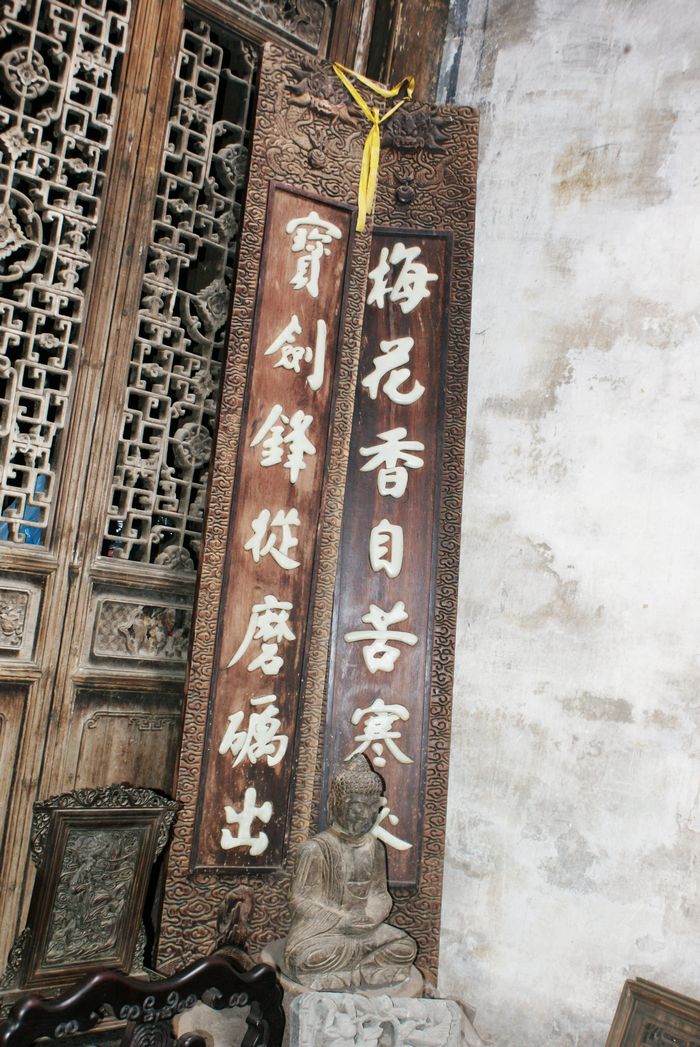 梅花香自苦寒
寶劍鋒從磨礪出